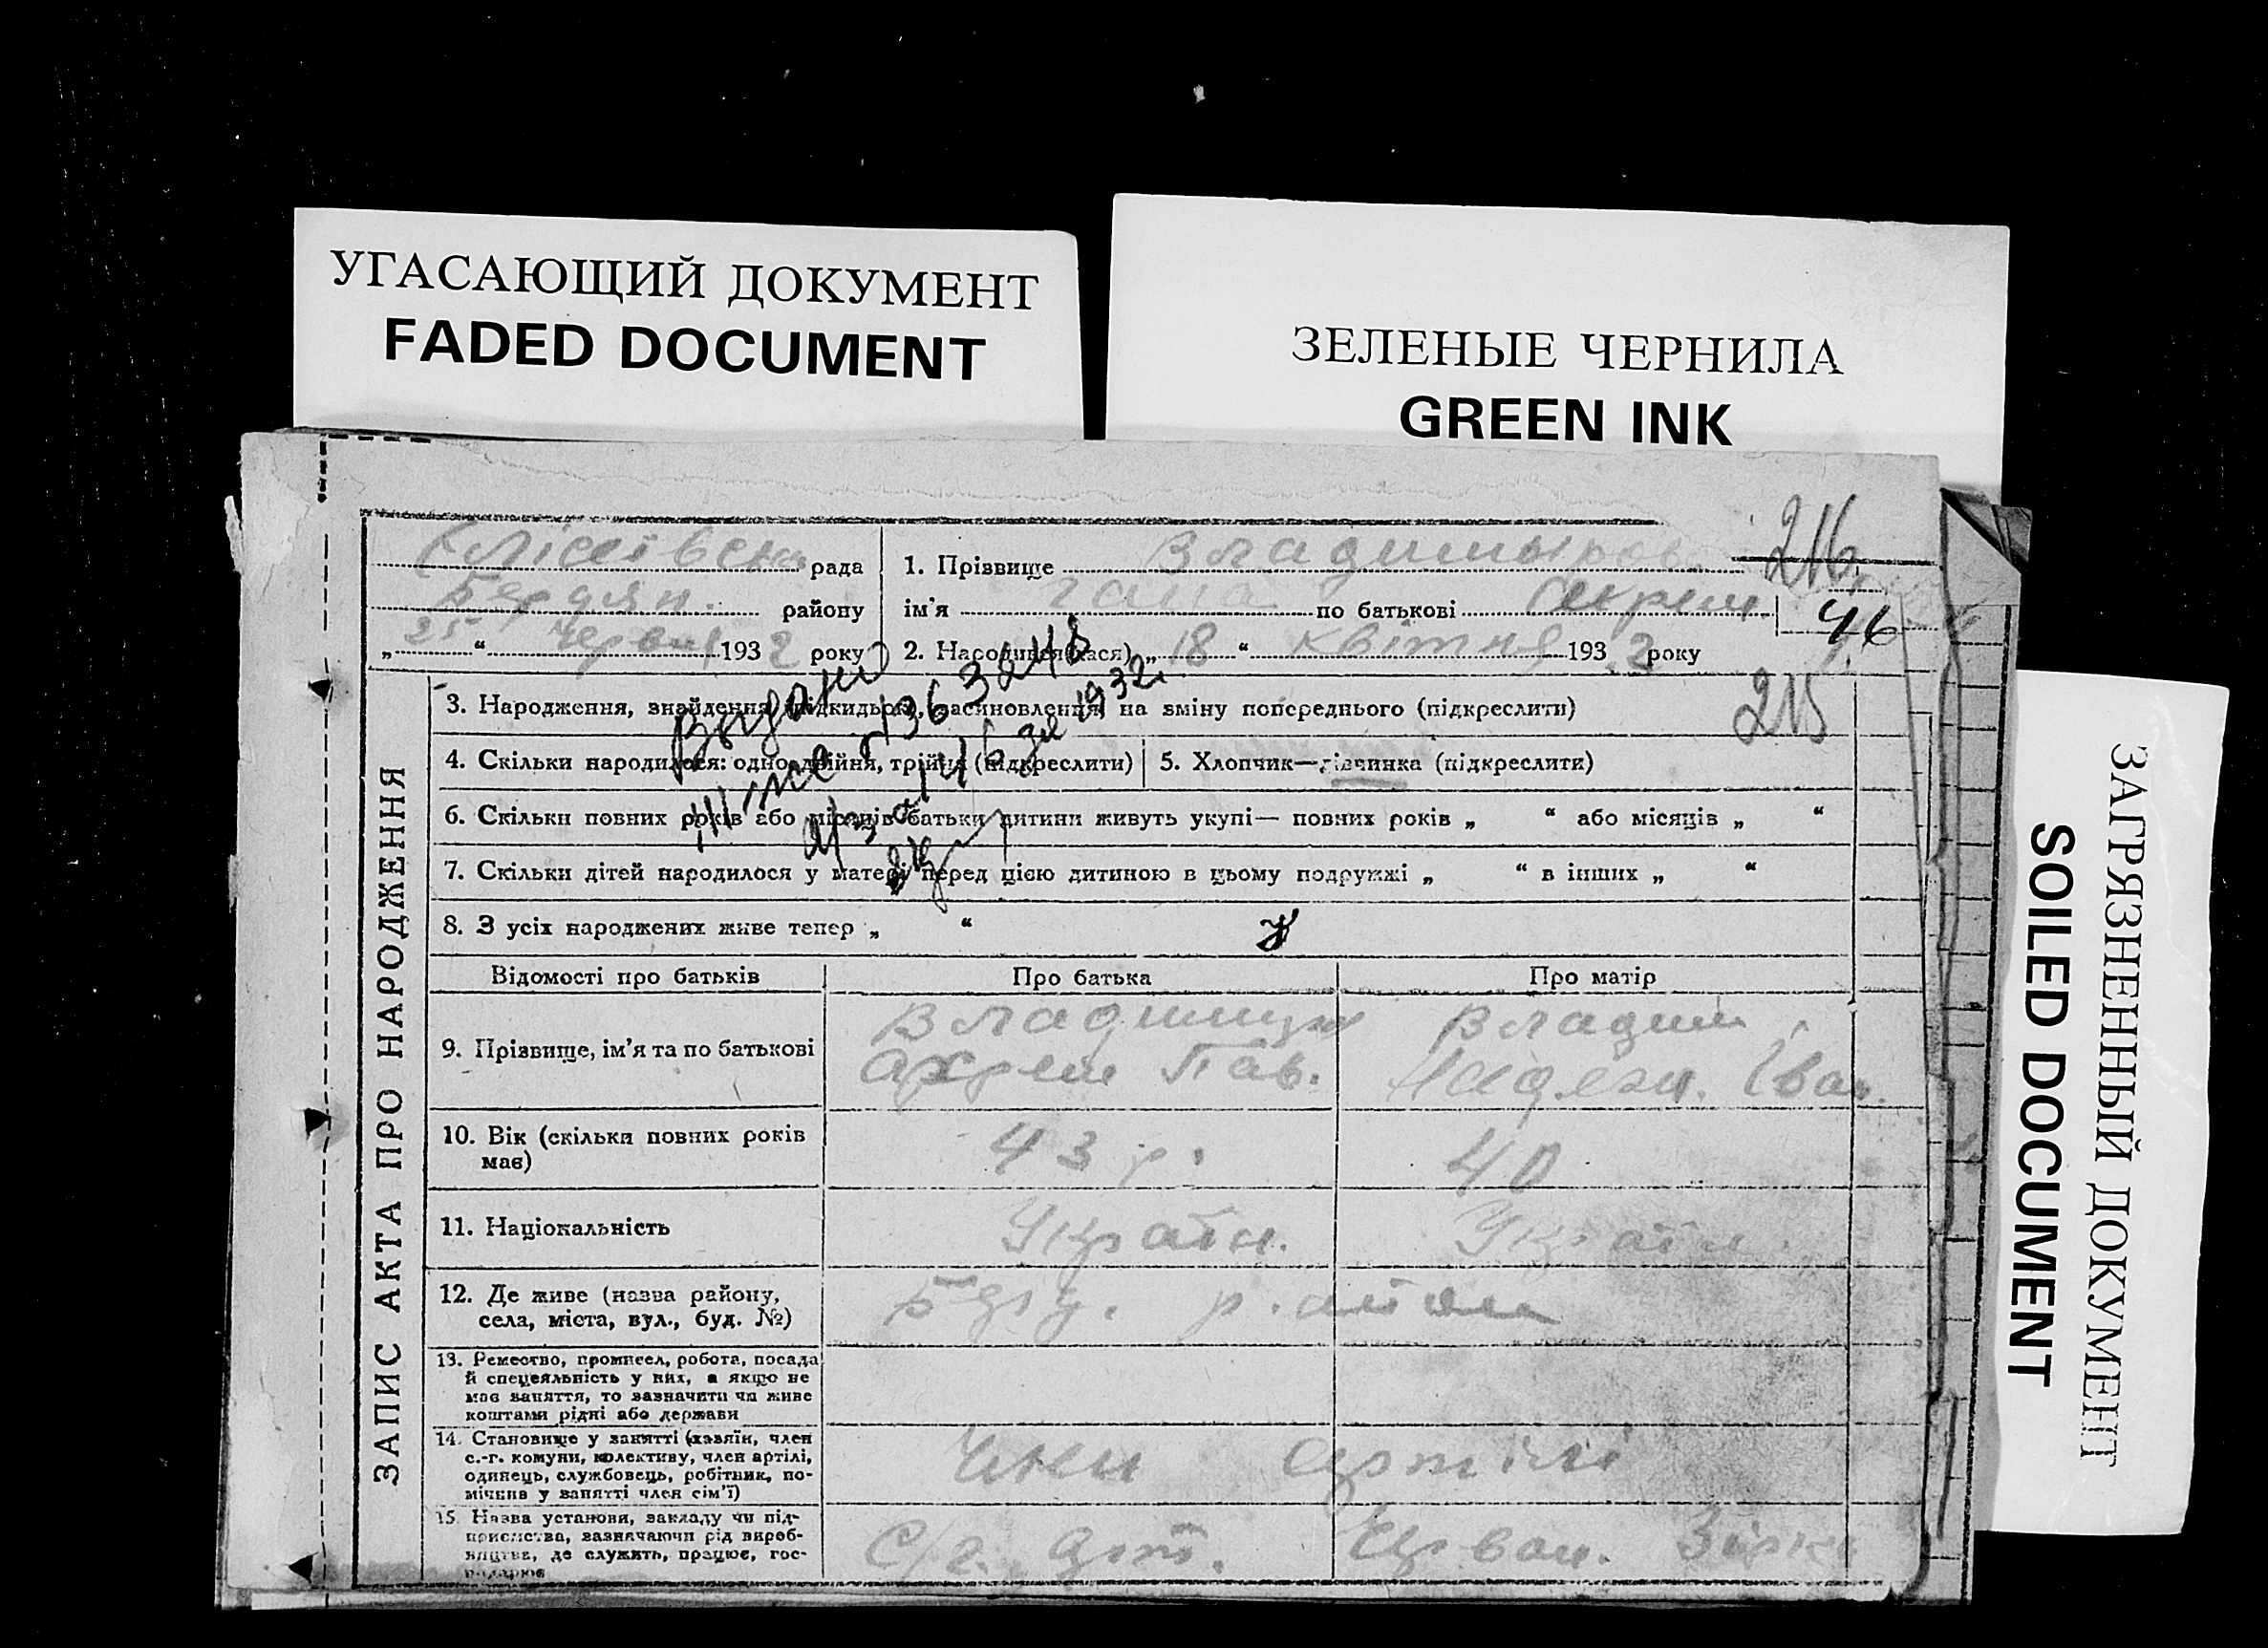 УГАСАЮЩИЙ ДОКУМЕНТ
FADED DOCUMENT
ЗЕЛЕНЫЕ ЧЕРНИЛА
GREEN INK
ЗАГРЯЗНЕННЫЙ ДОКУМЕНТ
SOILED DOCUMENT
216
рада
1. Прізвище
Бердян. району
ім'я Гана по батькові
46
„ 25 “ червня 1932 року
2. Народився(лася) „ 18 “ квітня 1932 року
215
ЗАПИС АКТА ПРО НАРОДЖЕННЯ
3. Народження, знайдення (підкидька), засиновлення, на зміну попереднього (підкреслити)
4. Скільки народилося: одно, двійня, трійня (підкреслити)
5. Хлопчик—дівчинка (підкреслити)
6. Скільки повних років або місяців батьки дитини живуть укупі— повних років „ “ або місяців „ “
7. Скільки дітей народилося у матері перед цією дитиною в цьому подружжі „ “ в інших „ “
8. З усіх народжених живе тепер „ “
1932
Відомості про батьків
Про батька
Про матір
9. Прізвище, ім'я та по батькові
Пав.
Владим.
Іван.
10. Вік (скільки повних років
має)
43 р.
40
11. Національність
Україн.
Україн.
12. Де живе (назва району,
села, міста, вул., буд. №)
13. Ремество, промисел, робота, посада
й спеціяльність у них, а якщо не
має заняття, то зазначити чи живе
коштами рідні або держави
14. Становище у занятті (хазяїн, член
с.-г. комуни, колективу, член артілі,
одинець, службовець, робітник, по-
мічник у занятті член сім'ї)
Член артілі
15. Назва установи, закладу чи під-
приємства, зазначаючи рід вироб-
ництва, де служить, працює, гос-
подарює
С/г. арт. Червон. Зірка